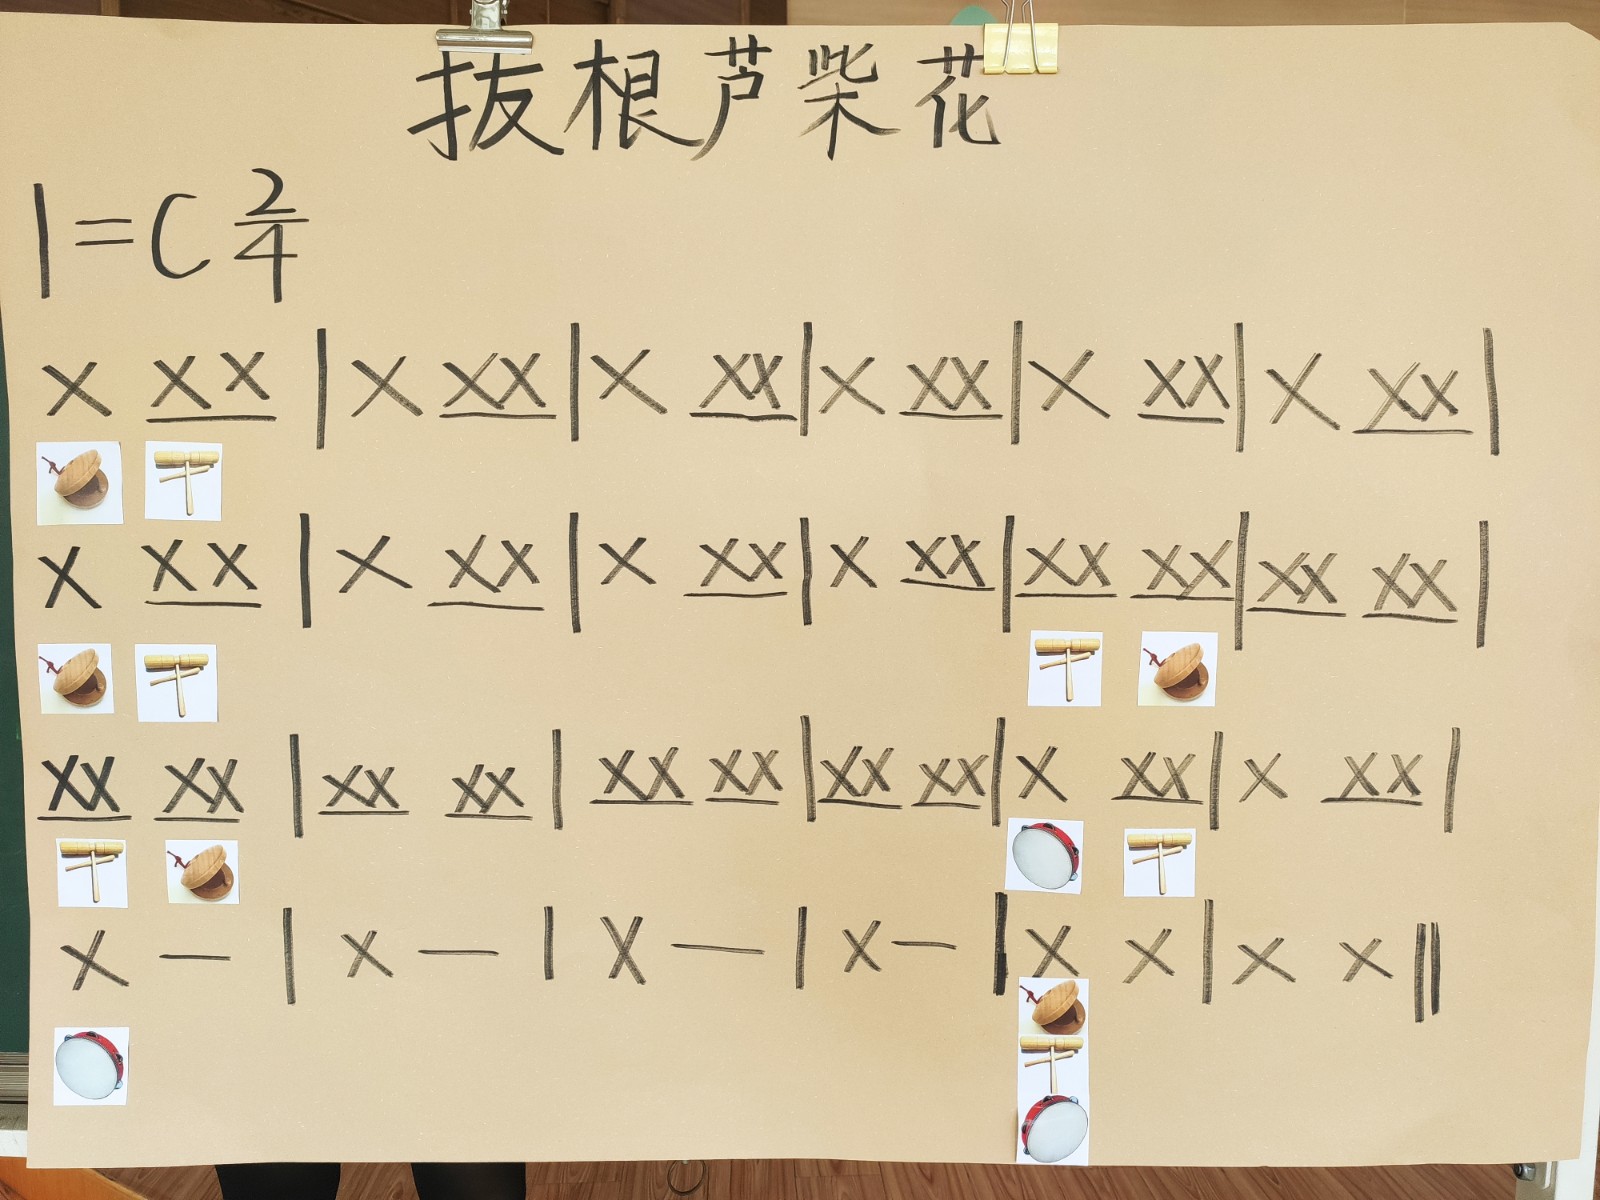 拔根芦柴花
1=C 2/4
X XX | X XX | X XX | X XX | X XX | X XX |
X XX | X XX | X XX | X XX | XX XX | XX XX |
XX XX | XX XX | XX XX | XX XX | X XX | X XX |
X — | X — | X — | X — | X X | X X ‖